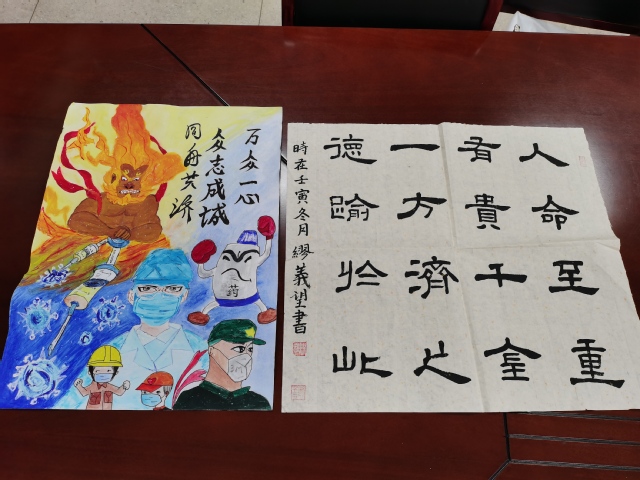 万众一心
众志成城
同舟共济
药
人命至重
有貴千金
一方濟之
德踰於此
時在壬寅冬月繆義望書